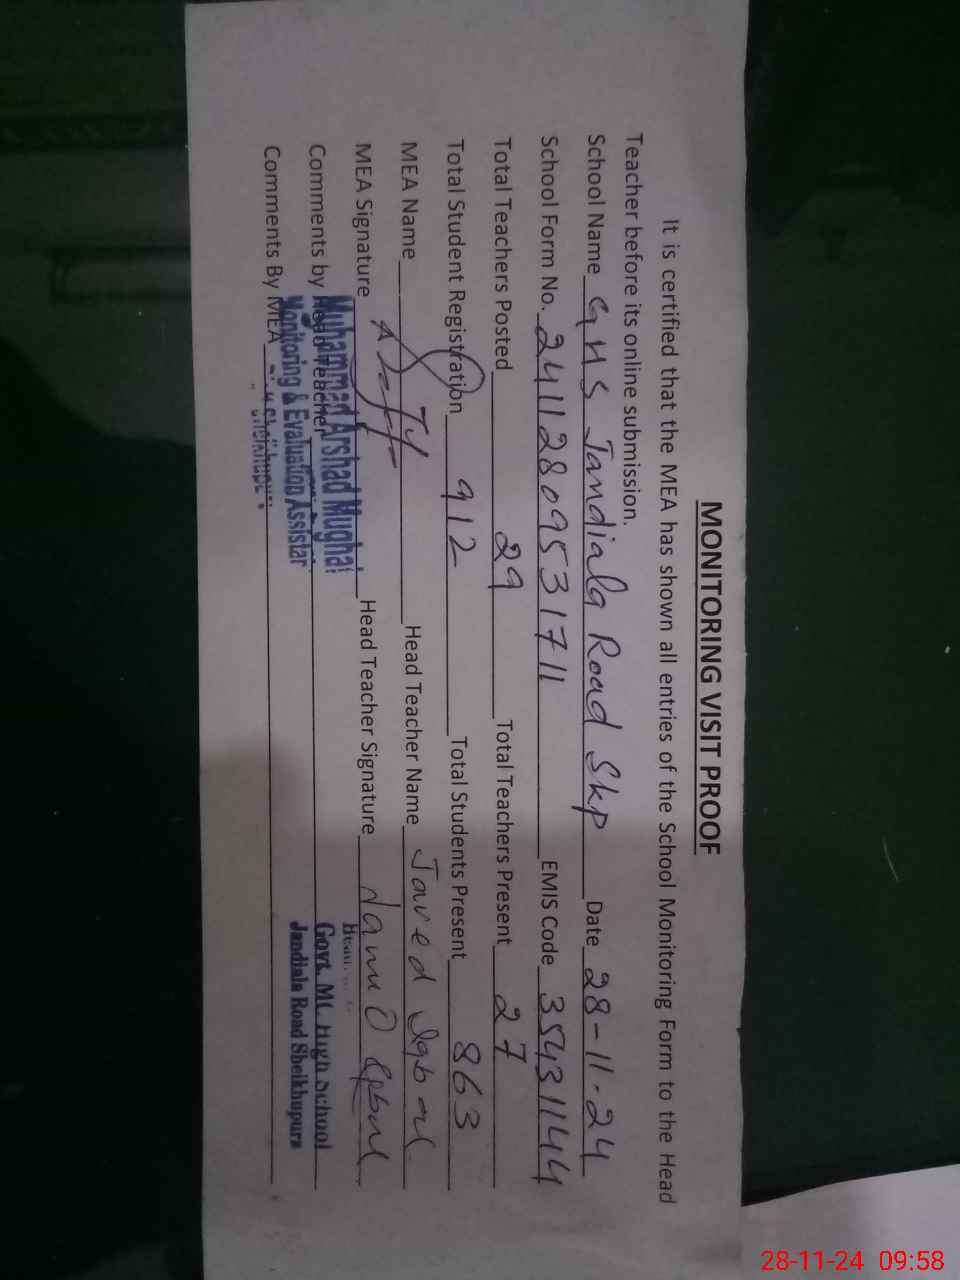 MONITORING VISIT PROOF
It is certified that the MEA has shown all entries of the School Monitoring Form to the Head
Teacher before its online submission.
School Name GHS Jandiala Road Skp Date 28-11-24
School Form No. 241128095317 11 EMIS Code 35431144
Total Teachers Posted 29 Total Teachers Present 27
Total Student Registration 912 Total Students Present 863
MEA Name Head Teacher Name Javed Iqbal
MEA Signature Head Teacher Signature
Muhammad Arshad Mughal
Comments by Head Teacher
Monitoring & Evaluation Assistant
Comments By MEA
Govt. MC High School
Jandiala Road Sheikhupura
28-11-24 09:58